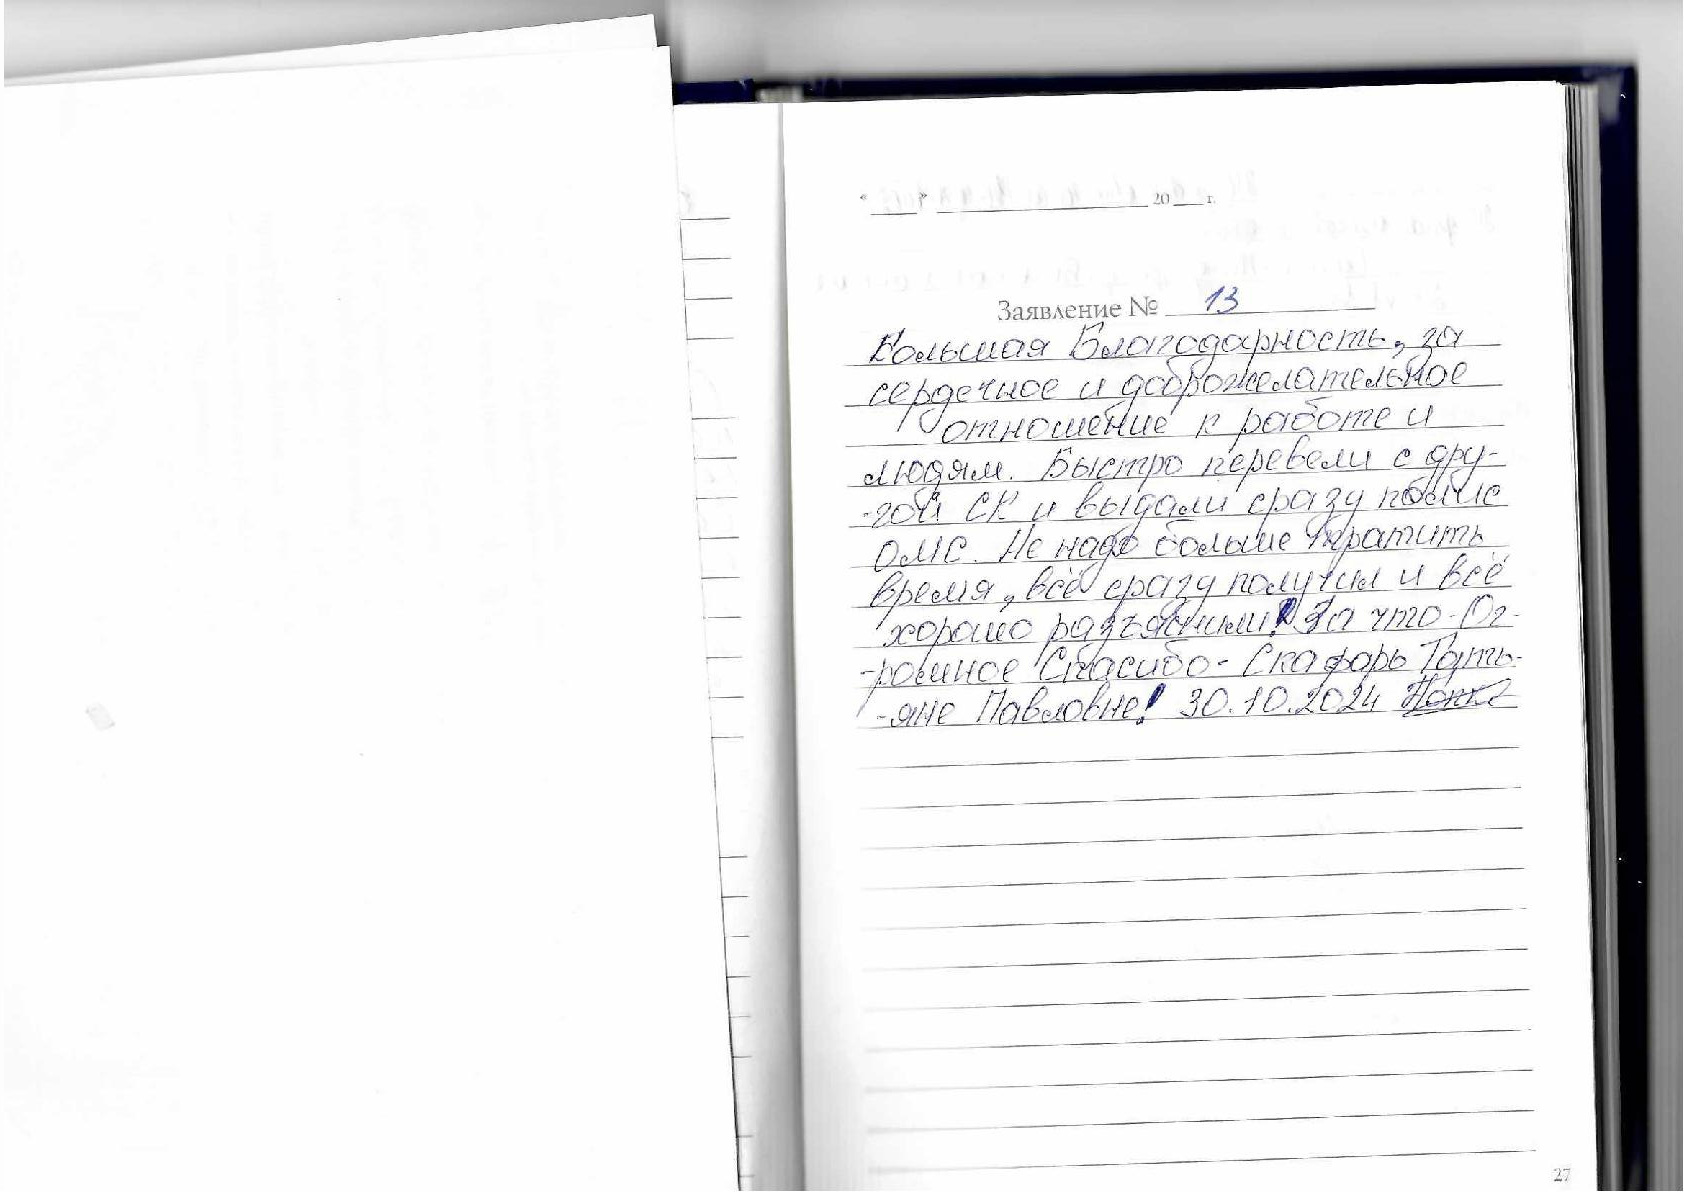 "____" ____________ 20___ г.
Заявление № 13
Большая Благодарность, за
сердечное и доброжелательное
отношение к работе и
людям. Быстро перевели с дру-
-гой СК и выдали сразу полис
ОМС. Не надо больше тратить
время, всё сразу получил и всё
хорошо разъяснили! За что - Ог-
-ромное Спасибо - Скафарь Тать-
-яне Павловне! 30.10.2024
27